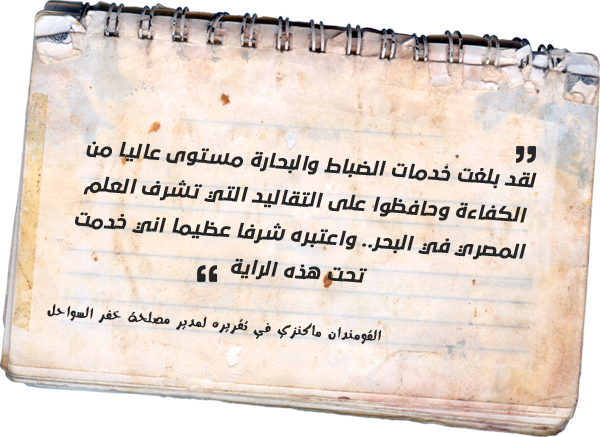 ”
لقد بلغت خدمات الضباط والبحارة مستوى عاليا من
الكفاءة وحافظوا على التقاليد التي تشرف العلم
المصري في البحر.. واعتبره شرفا عظيما اني خدمت
تحت هذه الراية “
القومندان ماكنزي في تقريره لمدير مصلحة خفر السواحل